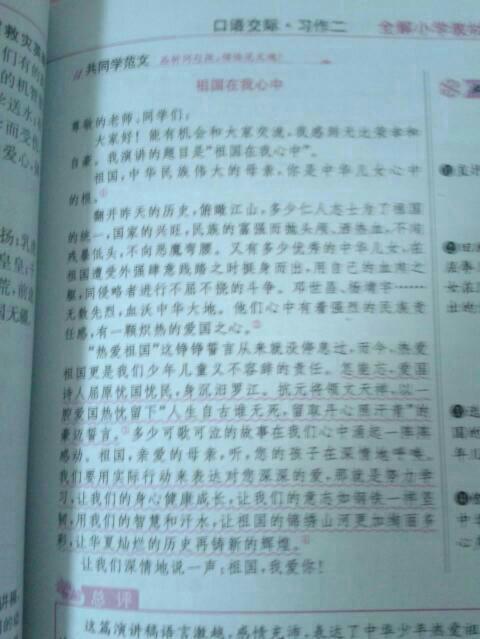 口语交际·习作二
全解小学教
共同学范文
祖国在我心中
尊敬的老师、同学们:
大家好!能有机会和大家交流,我感到无比荣幸和
自豪。我演讲的题目是“祖国在我心中”。
祖国,中华民族伟大的母亲,你是中华儿女心中
的根。①
翻开昨天的历史,俯瞰江山,多少仁人志士为了祖国
的统一,国家的兴旺,民族的富强而抛头颅、洒热血,不向
残暴低头,不向恶魔弯腰。又有多少优秀的中华儿女,在
祖国遭受外强肆意践踏之时挺身而出,用自己的血肉之
躯,同侵略者进行不屈不挠的斗争。邓世昌、杨靖宇……
无数先烈,血沃中华大地。他们心中有着强烈的民族责
任感,有一颗炽热的爱国之心。②
“热爱祖国”这铮铮誓言从来就没停息过,而今,热爱
祖国更是我们少年儿童义不容辞的责任。怎能忘,爱国
诗人屈原忧国忧民,身沉汨罗江。抗元将领文天祥,以一
腔爱国热忱留下“人生自古谁无死,留取丹心照汗青”的
豪迈誓言。③多少可歌可泣的故事在我们心中涌起一阵阵
感动。祖国,亲爱的母亲,听,您的孩子在深情地呼唤。
我们要用实际行动来表达对您深深的爱,那就是努力学
习,让我们的身心健康成长,让我们的意志如钢铁一样坚
韧,用我们的智慧和汗水,让祖国的锦绣山河更加绚丽多
彩,让华夏灿烂的历史再铸新的辉煌。④
让我们深情地说一声:祖国,我爱你!
总评
这篇演讲稿语言激越,感情充沛,表达了中华少年热爱祖